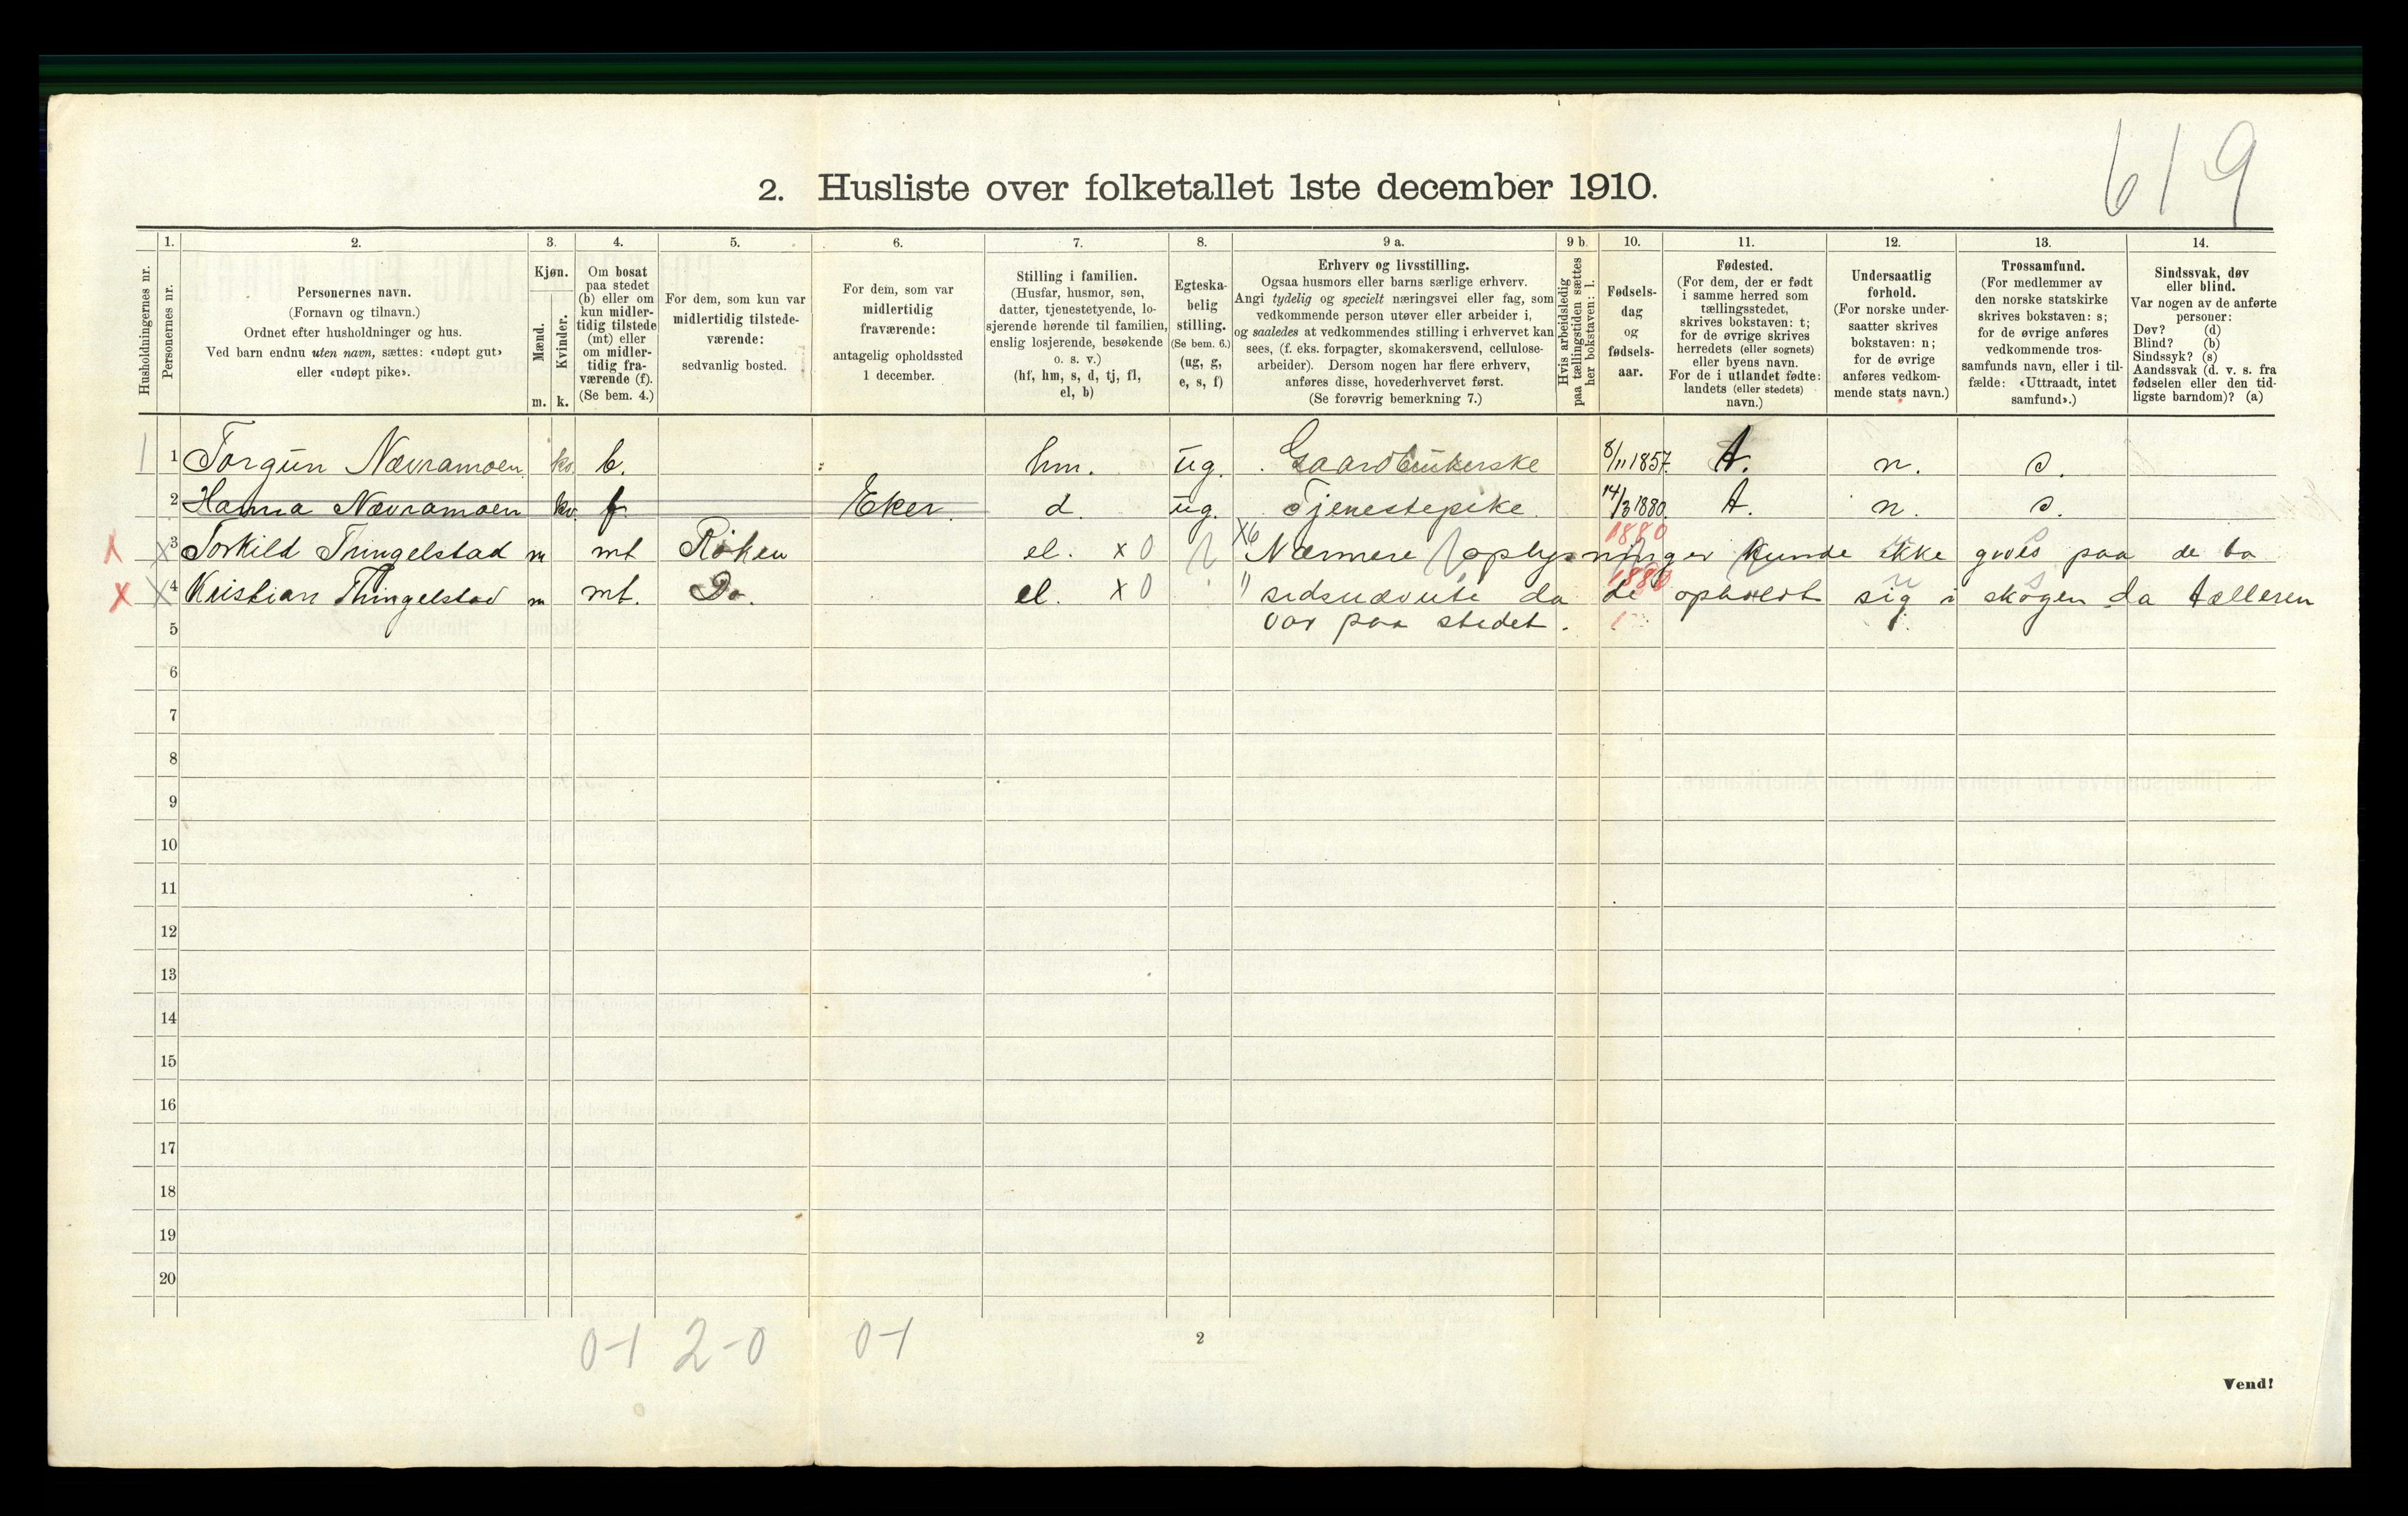 619
2. Husliste over folketallet 1ste december 1910.
1. 2. 3. 4. 5. 6. 7. 8. 9 a. 9 b. 10. 11. 12. 13. 14.
Husholdningernes nr.
Personernes nr.
Personernes navn.
(Fornavn og tilnavn.)
Ordnet efter husholdninger og hus.
Ved barn endnu uten navn, sættes: «udøpt gut»
eller «udøpt pike».
Kjøn.
Mænd.
Kvinder.
m. k.
Om bosat
paa stedet
(b) eller om
kun midler-
tidig tilstede
(mt) eller
om midler-
tidig fra-
værende (f).
(Se bem. 4.)
For dem, som kun var
midlertidig tilstede-
værende:
sedvanlig bosted.
For dem, som var
midlertidig
fraværende:
antagelig opholdssted
1 december.
Stilling i familien.
(Husfar, husmor, søn,
datter, tjenestetyende, lo-
sjerende hørende til familien,
enslig losjerende, besøkende
o. s. v.)
(hf, hm, s, d, tj, fl,
el, b)
Egteska-
belig
stilling.
(Se bem. 6.)
(ug, g,
e, s, f)
Erhverv og livsstilling.
Ogsaa husmors eller barns særlige erhverv.
Angi tydelig og specielt næringsvei eller fag, som
vedkommende person utøver eller arbeider i,
og saaledes at vedkommendes stilling i erhvervet kan
sees, (f. eks. forpagter, skomakersvend, cellulose-
arbeider). Dersom nogen har flere erhverv,
anføres disse, hovederhvervet først.
(Se forøvrig bemerkning 7.)
Hvis arbeidsledig
paa tællingstiden sættes
her bokstaven: l.
Fødsels-
dag
og
fødsels-
aar.
Fødested.
(For dem, der er født
i samme herred som
tællingsstedet,
skrives bokstaven: t;
for de øvrige skrives
herredets (eller sognets)
eller byens navn.
For de i utlandet fødte:
landets (eller stedets)
navn.)
Undersaatlig
forhold.
(For norske under-
saatter skrives
bokstaven: n;
for de øvrige
anføres vedkom-
mende stats navn.)
Trossamfund.
(For medlemmer av
den norske statskirke
skrives bokstaven: s;
for de øvrige anføres
vedkommende tros-
samfunds navn, eller i til-
fælde: «Uttraadt, intet
samfund».)
Sindssvak, døv
eller blind.
Var nogen av de anførte
personer:
Døv? (d)
Blind? (b)
Sindssyk? (s)
Aandssvak (d. v. s. fra
fødselen eller den tid-
ligste barndom)? (a)
1 1 Torgun Nævramoen kv b. hm. ug. Gaardbrukerske 8/11 1857. t. n. s.
2 Hanna Nævramoen kv. f Eker. d. ug. Tjenestepike. 14/3 1880. t. n. s.
X X 3 Torkild Thingelstad m mt Röken el. x 0 X6 Nærmere oplysninger kunde ikke gives paa de to
1880
X X 4 Kristian Thingelstad m mt. Do. el. x 0 " sidsnævnte da de opholdt sig i skogen da tælleren
1880
5 var paa stedet.
6
7
8
9
10
11
12
13
14
15
16
17
18
19
20
0-1 2-0 0-1
2
Vend!